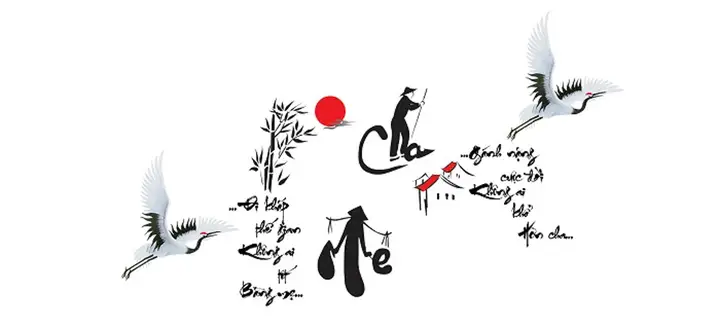 Cha
...Gánh nặng
cuộc đời
Không ai
khổ
Hơn cha...
Mẹ
...Đi khắp
thế gian
Không ai
tốt
Bằng mẹ...